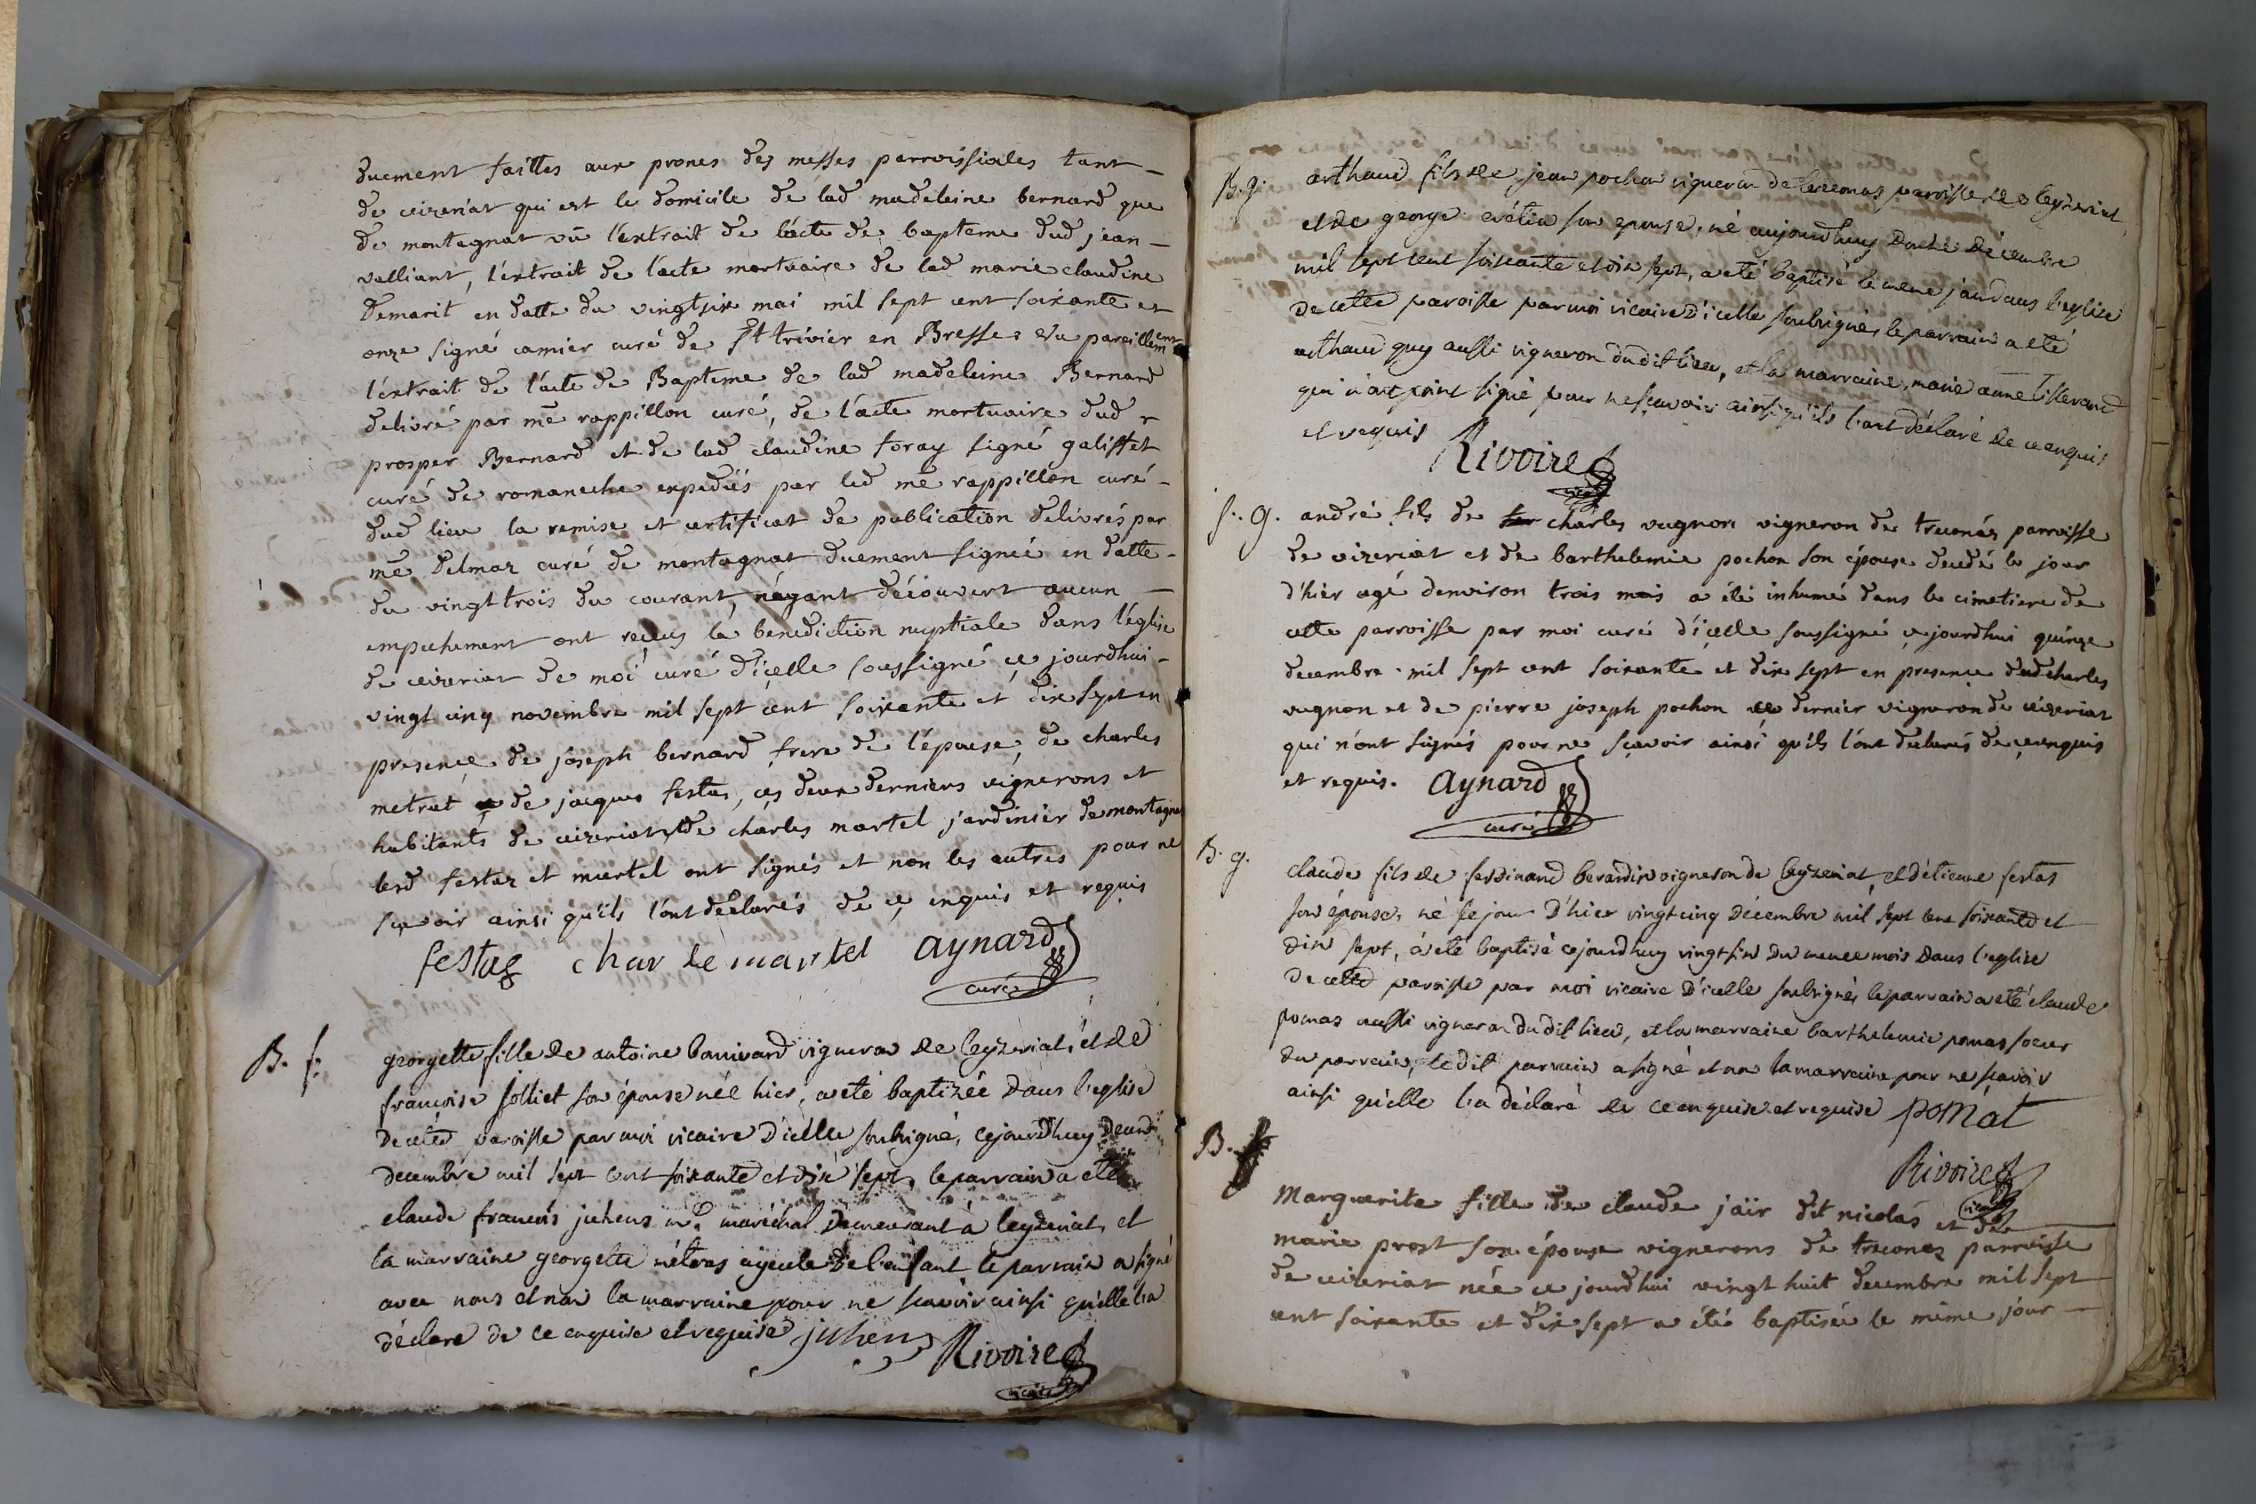 duement faittes aux prones des messes parroissiales tant
de ceizeriat qui est le domicile de lad madeleine bernard que
de montagnat vû l'extrait de l'acte de bapteme dud jean
valliant, l'extrait de l'acte mortuaire de lad marie claudine
Demarit en datte du vingtsix mai mil sept cent soixante et
onze signé camier curé de St trivier en Bresse vu pareillement
l'extrait de l'acte de Bapteme de lad madeleine Bernard
delivré par mre rappillon curé, de l'acte mortuaire dud
prosper Bernard et de lad claudine foray signé galiffet
curé de romaneche expediés par led mre rappillon curé
dud lieu la remise et certificat de publication delivrés par
mre Delmaz curé de montagnat duement signée en datte
du vingt trois du courant, n'ayant découvert aucun
empechement ont reçus la benediction nuptiale dans l'église
de ceizeriat de moi curé d'icelle soussigné ce jourdhui
vingt cinq novembre mil sept cent soixante et dix sept en
presence de joseph bernard frere de l'épouse, de charles
metrat de jacques festas, ces deux derniers vignerons et
habitants de ceizeriat, de charles martel jardinier de montagnat
lesd festaz et martel ont signés et non les autres pour ne
sçavoir ainsi qu'ils l'ont declarés de ce enquis et requis
festaz charle martel aynard
curé
B. f. georgette fille de antoine bannivard vigneron de Ceyzeriat, et de
françoise folliet son épouse née hier, a été baptizée dans l'eglise
de cette paroisse par moi vicaire d'icelle soubsigné, cejourdhuy deux
decembre mil sept cent soixante et dix sept, le parrain a été
claude françois juhens maréchal demeurant à Ceyzeriat, et
la marraine georgette métras ayeule de l'enfant le parrain a signé
avec nous et non la marraine pour ne scavoir ainsi qu'elle l'a
déclaré de ce enquise et requise juhens Rivoire
vicaire
B. g. arthaud fils de jean pochon vigneron de treconas paroisse de Ceyzeriat
et de george son epouse, né aujourdhuy douze décembre
mil sept cent soixante et dix sept, a été baptisé le meme jour dans l'eglise
de cette paroisse par moi vicaire d'icelle soubsigné, le parrain a été
arthaud guy aussi vigneron dudit lieu, et la marraine, marie anne tisserand
qui n'ont point signé pour ne sçavoir ainsi qu'ils l'ont déclaré de ce enquis
et requis Rivoire
vicaire
S. G. andré fils de charles vugnon vigneron de treconaz parroisse
de ceizeriat et de barthelemie pochon son épouse decedé le jour
d'hier agé denviron trois mois a été inhumé dans le cimetiere de
cette parroisse par moi curé d'icelle soussigné cejourdhui quinze
decembre mil sept cent soixante et dix sept en presence dud charles
vugnon et de pierre joseph pochon ce dernier vigneron de ceizeriat
qui n'ont signés pour ne sçavoir ainsi qu'ils l'ont declarés de ce enquis
et requis. aynard
curé
B. g. claude fils de ferdinand berardin vigneron de Ceyzeriat, et d'étienne festas
son épouse, né le jour d'hier vingt cinq décembre mil sept cent soixante et
dix sept, a été baptisé cejourdhuy vingt six du meme mois dans l'eglise
de cette paroisse par moi vicaire d'icelle soubsigné, le parrain a été claude
pomas aussi vigneron dudit lieu, et la marraine barthelemie pomas soeur
du parrain, ledit parrain a signé et non la marraine pour ne scavoir
ainsi qu'elle l'a déclaré de ce enquise et requise pomat
Rivoire
vicaire
B. f. Marguerite fille de claude jaïr dit nicolas et de
marie prost son épouse vignerons de treconaz parroisse
de ceizeriat née ce jourdhui vingt huit decembre mil sept
cent soixante et dix sept a été baptisée le même jour